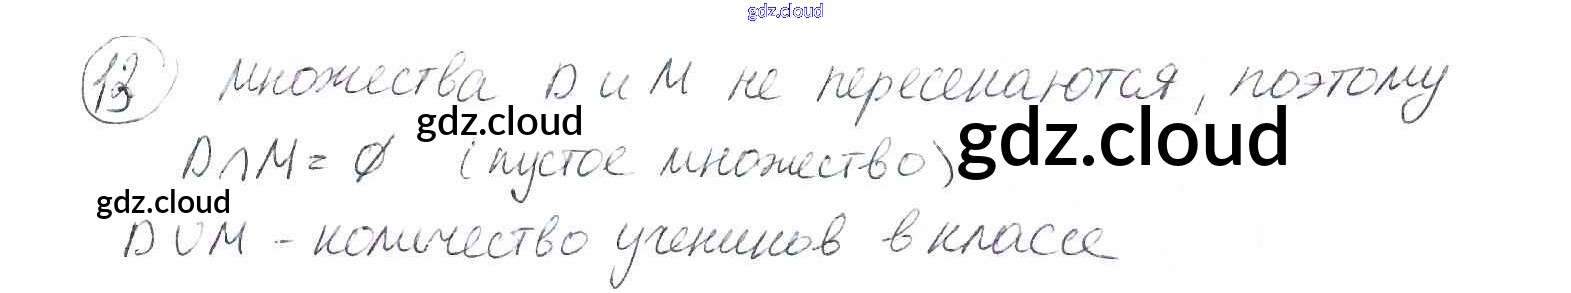 gdz.cloud
13 Множества D и M не пересекаются, поэтому
gdz.cloud gdz.cloud
D∩M = ∅ (пустое множество)
gdz.cloud
D∪M - количество учеников в классе